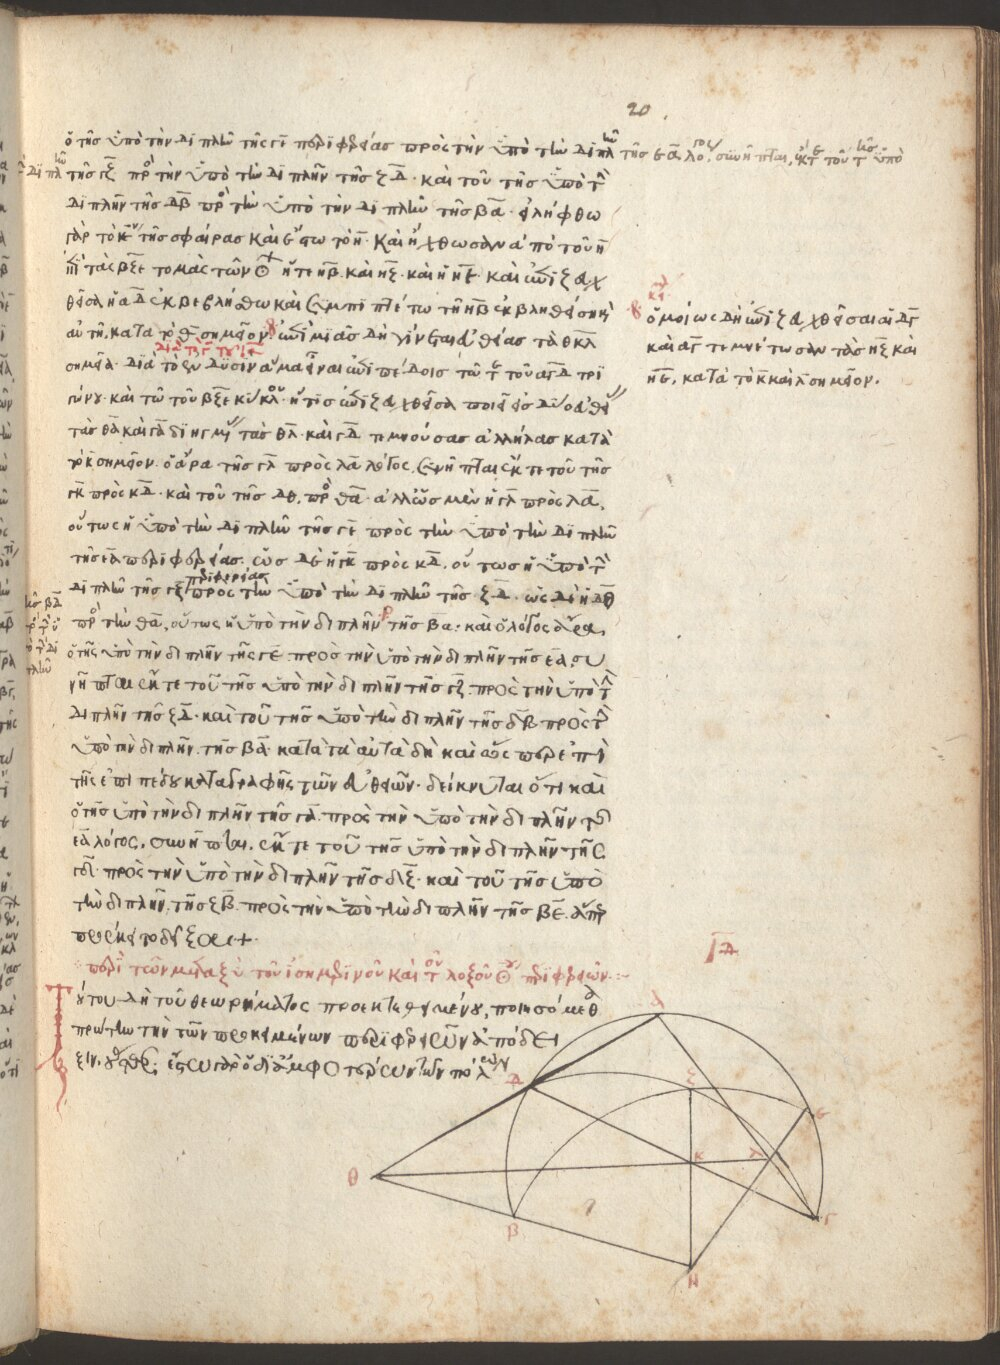 20
ὁ τῆς ὑπὸ τὴν διπλῆν τῆς γε περιφερείας πρὸς τὴν ὑπὸ τὴν διπλῆν τῆς εα λόγος, συνῆπται, ἔκ τε τοῦ τῆς ὑπὸ
διπλῆν τῆς γζ πρὸς τὴν ὑπὸ τὴν διπλῆν τῆς ζδ. καὶ τοῦ τῆς ὑπὸ τὴν
διπλῆν τῆς δβ πρὸς τὴν ὑπὸ τὴν διπλῆν τῆς βα. εἰλήφθω
γὰρ τὸ κέντρον τῆς σφαίρας καὶ ἔστω τὸ η. καὶ ἤχθωσαν ἀπὸ τοῦ η
ἐπὶ τὰς βζε τομὰς τῶν κύκλων ἥ τε ηβ. καὶ ηζ. καὶ ἡ ηε. καὶ ἐπιζευχ
θεῖσα ἡ αδ ἐκβεβλήσθω καὶ συμπιπτέτω τῇ ηβ ἐκβληθείσῃ καὶ
αὐτῇ, κατὰ τὸ θ σημεῖον. ὁμοίως δὴ ἐπιζευχθεῖσαι αἱ δγ
καὶ αγ τεμνέτωσαν τὰς ηζ καὶ
ηε, κατὰ τὸ κ καὶ λ σημεῖον.
ἐπὶ μιᾶς δὴ γίνεται εὐθείας τὰ θκλ
σημεῖα. διὰ τὸ ἐν δυσὶν ἅμα εἶναι ἐπιπέδοις τῷ τε τοῦ αγδ τρι
γώνου. καὶ τῷ τοῦ βζε κύκλου. ἥτις ἐπιζευχθεῖσα ποιεῖ εἰς δύο εὐθείας
τὰς θα καὶ γα διηγμένας τὰς θλ. καὶ γδ τεμνούσας ἀλλήλας κατὰ
τὸ κ σημεῖον. ὁ ἄρα τῆς γλ πρὸς λα λόγος, συνῆπται ἔκ τε τοῦ τῆς
γκ πρὸς κδ. καὶ τοῦ τῆς δθ, πρὸς θα. ἀλλ' ὡς μὲν ἡ γλ πρὸς λα,
οὕτως ἡ ὑπὸ τὴν διπλῆν τῆς γε πρὸς τὴν ὑπὸ τὴν διπλῆν
τῆς εα περιφερείας. ὡς δὲ ἡ γκ πρὸς κδ, οὕτως ἡ ὑπὸ τὴν
διπλῆν τῆς γζ περιφερείας πρὸς τὴν ὑπὸ τὴν διπλῆν τῆς ζδ. ὡς δὲ ἡ δθ
πρὸς τὴν θα, οὕτως ἡ ὑπὸ τὴν διπλῆν τῆς βα. καὶ ὁ λόγος ἄρα,
ὁ τῆς ὑπὸ τὴν διπλῆν τῆς γε πρὸς τὴν ὑπὸ τὴν διπλῆν τῆς εα, συ
νῆπται ἔκ τε τοῦ τῆς ὑπὸ τὴν διπλῆν τῆς γζ πρὸς τὴν ὑπὸ τὴν
διπλῆν τῆς ζδ. καὶ τοῦ τῆς ὑπὸ τὴν διπλῆν τῆς δβ πρὸς τὴν
ὑπὸ τὴν διπλῆν τῆς βα. κατὰ τὰ αὐτὰ δὴ καὶ ὥσπερ ἐπὶ
τῆς ἐπιπέδου καταγραφῆς τῶν εὐθειῶν. δείκνυται ὅτι καὶ
ὁ τῆς ὑπὸ τὴν διπλῆν τῆς γα. πρὸς τὴν ὑπὸ τὴν διπλῆν τῆς
εα λόγος, συνῆπται, ἔκ τε τοῦ τῆς ὑπὸ τὴν διπλῆν τῆς
γδ. πρὸς τὴν ὑπὸ τὴν διπλῆν τῆς δζ. καὶ τοῦ τῆς ὑπὸ
τὴν διπλῆν τῆς ζβ. πρὸς τὴν ὑπὸ τὴν διπλῆν τῆς βε. ἅπερ
προέκειτο δεῖξαι +
περὶ τῶν μεταξὺ τοῦ ἰσημερινοῦ καὶ τοῦ λοξοῦ κύκλου περιφερειῶν
Τούτου δὴ τοῦ θεωρήματος προεκτεθειμένου, ποιησόμεθα
πρώτην τὴν τῶν προκειμένων περιφερειῶν ἀπόδει
ξιν, οὕτως; ἔστω γὰρ ὁ δι' ἀμφοτέρων τῶν πόλων
ΙΔ
Α
Δ
Ζ
Ε
Θ
Κ
Λ
Β
Γ
Η